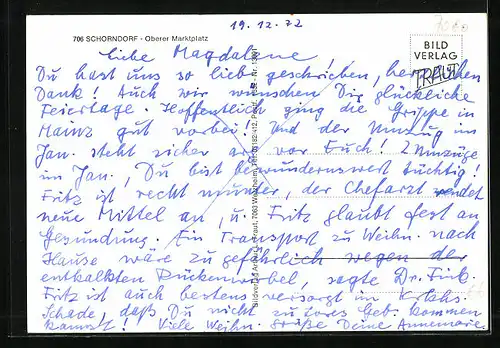 19.12.72
7060
706 SCHORNDORF - Oberer Marktplatz
BILD
VERLAG
TRAUT
Liebe Magdalene!
Du hast uns so lieb geschrieben, herzlichen
Dank! Auch wir wünschen Dir glückliche
Feiertage. Hoffentlich ging die Grippe in
Mainz gut vorbei! Und der Umzug im
Jan. steht sicher vor Euch! 2 Umzüge
im Jan. Du bist bewundernswert tüchtig!
Fritz ist recht munter, der Chefarzt wendet
neue Mittel an, u. Fritz glaubt fest an
Gesundung. Ein Transport zu Weihn. nach
Hause wäre zu gefährlich wegen der
entkalkten Rückenwirbel, sagte Dr. Fink.
Fritz ist auch bestens versorgt im Krkhs.
Schade, daß Du nicht zu Geb. kommen
kannst! Viele Weihn. Grüße Deine Annemarie.